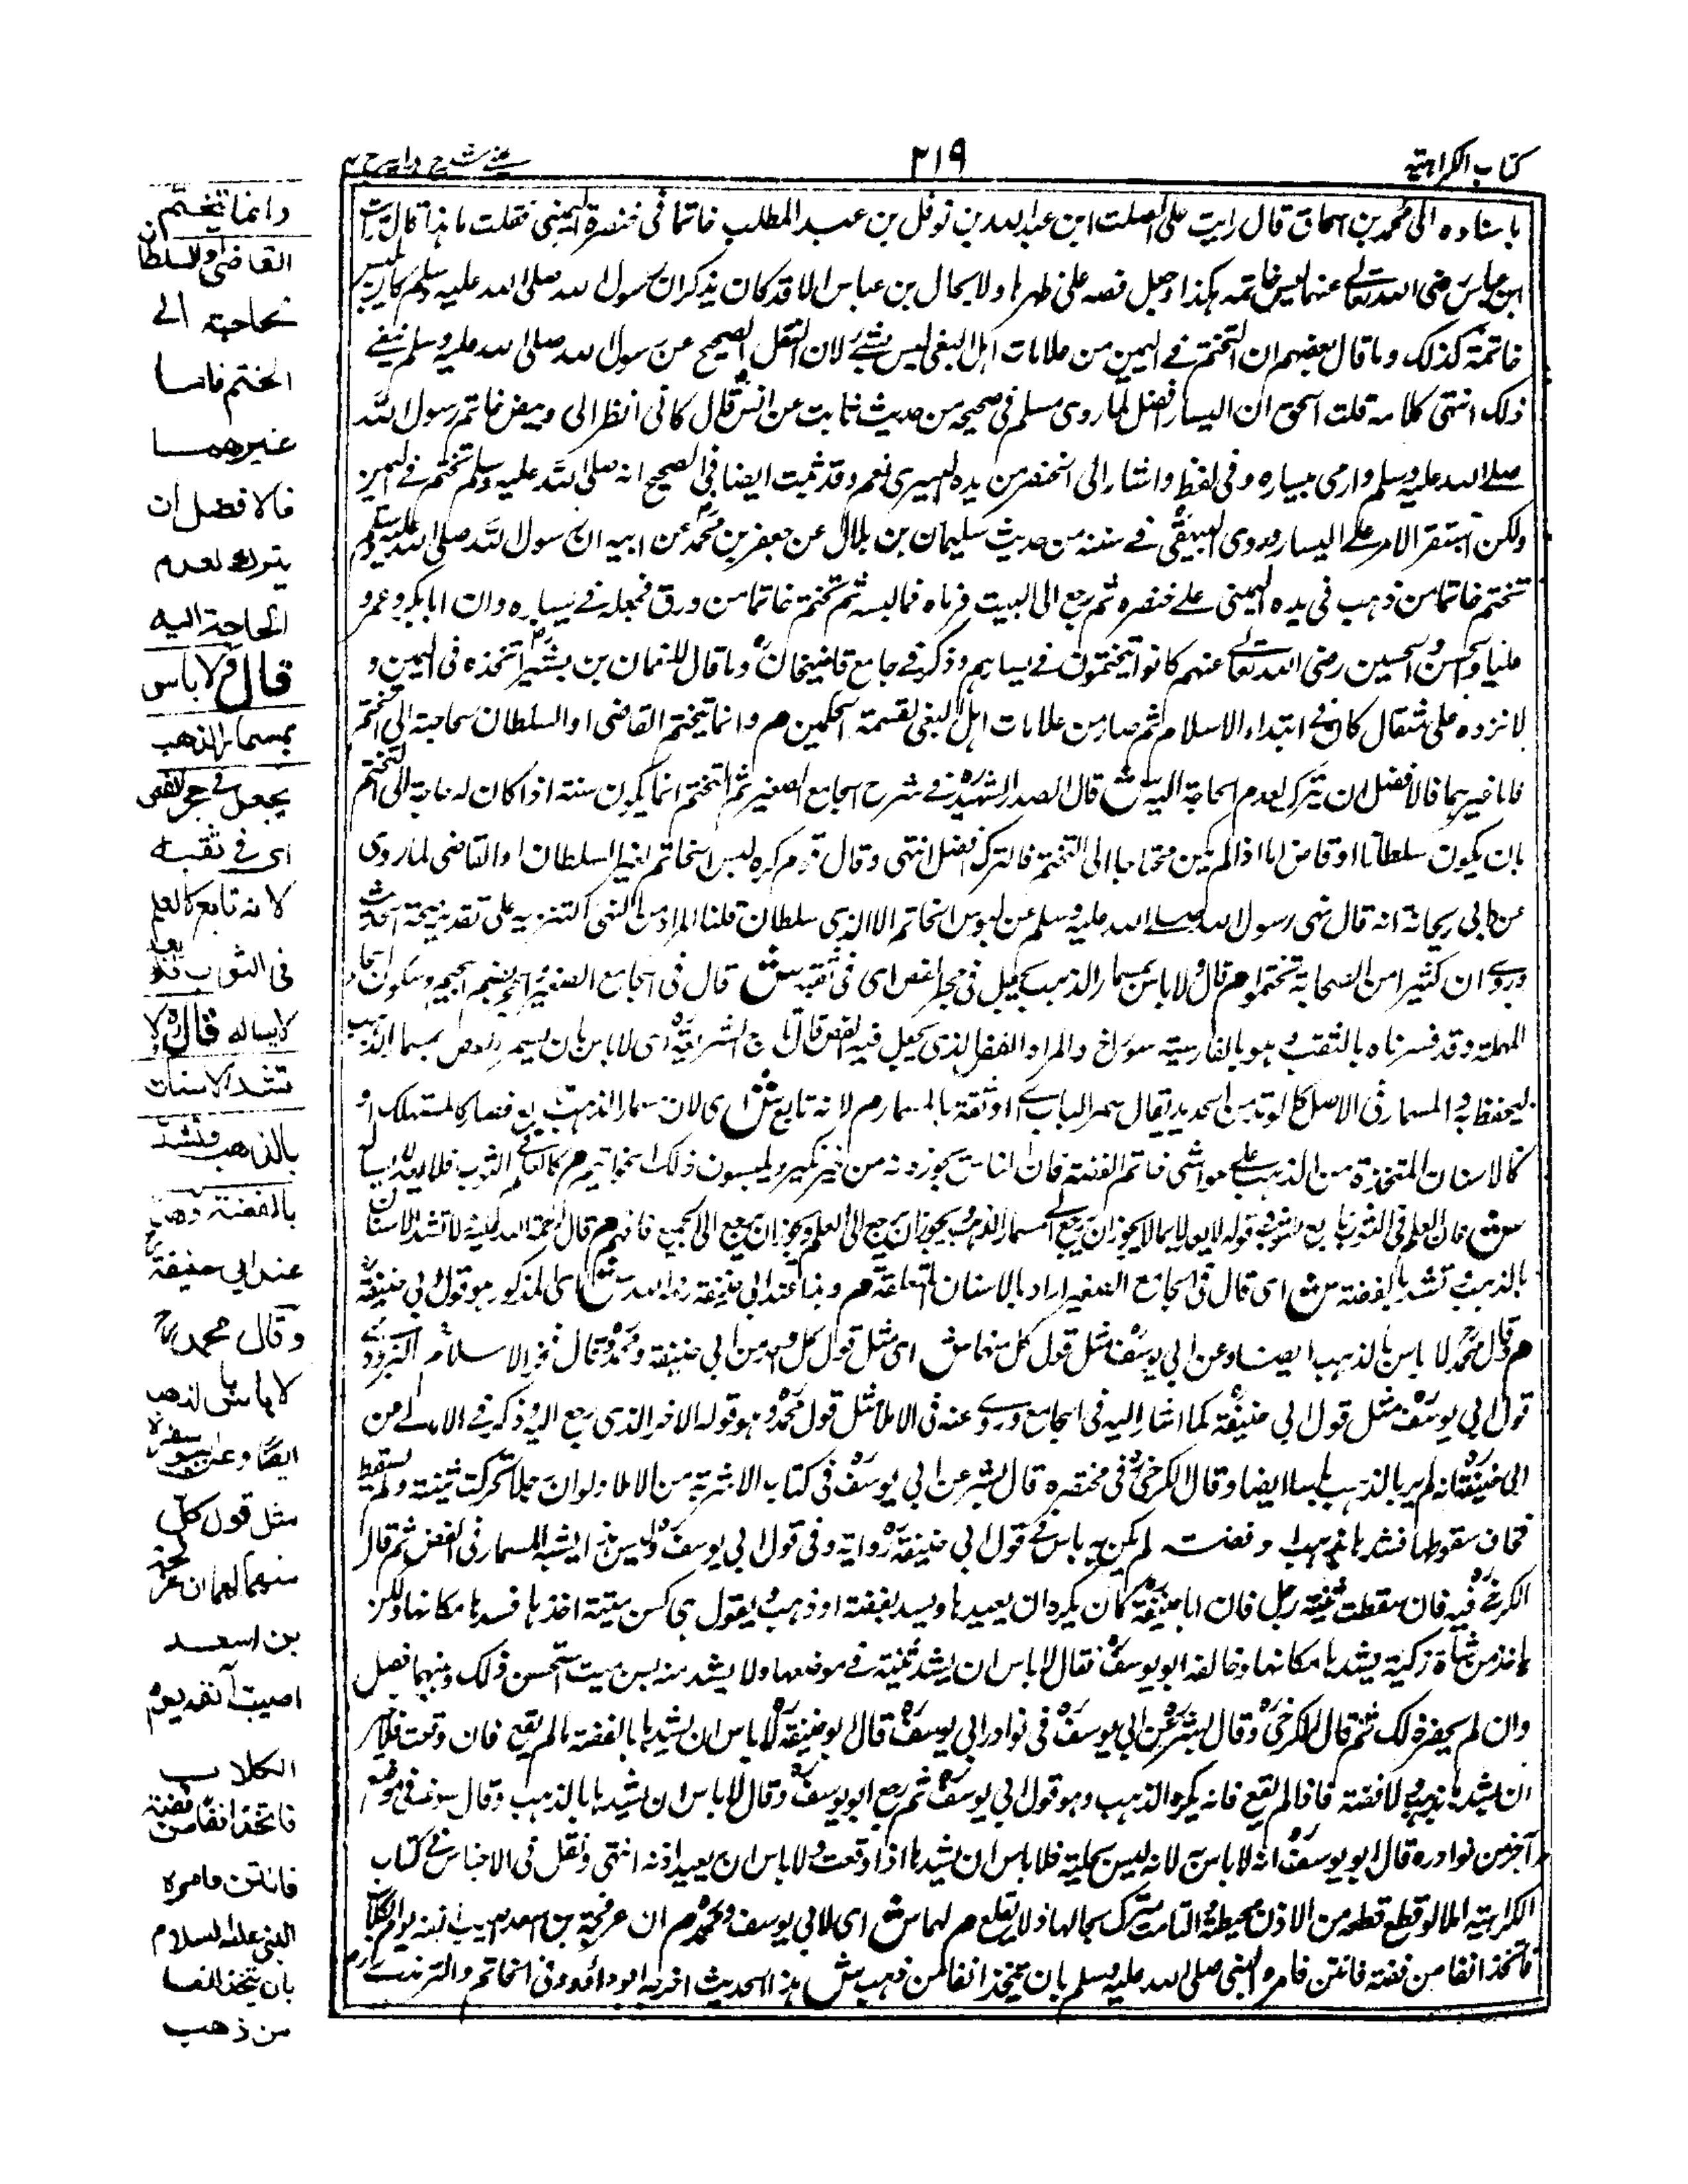 كتاب الكراهية
٢١٩
باسناده الى محمد بن اسحاق قال رايت على الصلت ابن عبد الله بن نوفل بن عبد المطلب خاتما فى خنصره اليمنى فقلت ما هذا قال رايت
ابن عباس رضى الله تعالى عنهما يلبس خاتمه هكذا وجعل فصه على ظهرها ولا يخال بن عباس الا قد كان يذكر ان رسول الله صلى الله عليه وسلم كان يلبس
خاتمه كذلك وما قال بعضهم ان التختم فى اليمين من علامات اهل البغى ليس بشئ لان النقل الصحيح عن رسول الله صلى الله عليه وسلم ينفى
ذلك انتهى كلامه قلت الحق ان اليسار افضل لما روى مسلم فى صحيحه من حديث ثابت عن انس قال كانى انظر الى وبيض خاتم رسول الله
صلى الله عليه وسلم وارمى بيساره وفى لفظ واشار الى الخنصر من يده اليسرى نعم وقد ثبت ايضا فى الصحيح انه صلى الله عليه وسلم تختم فى اليمين
ولكن استقر الامر على اليسار وروى البيهقى فى سننه من حديث سليمان بن بلال عن جعفر بن محمد عن ابيه ان رسول الله صلى الله عليه وسلم
تختم خاتما من ذهب فى يده اليمنى على خنصره ثم رجع الى البيت فرماه فما لبسه ثم تختم خاتما من ورق فجعله فى يساره وان ابا بكر وعمر و
عليا والحسن والحسين رضى الله تعالى عنهم كانوا يتختمون فى يسارهم وذكر فى جامع قاضيخان وما قال للنعمان بن بشير اتخذه فى اليمين و
لا تزده على مثقال كان فى ابتداء الاسلام ثم صار من علامات اهل البغى لقسمة الحكمين م وانما يتختم القاضى او السلطان لحاجته الى الختم
فاما غيرهما فالافضل ان يترك لعدم الحاجة اليه ش قال الصدر الشهيد فى شرح الجامع الصغير ثم التختم انما يكون سنة اذا كان له حاجة الى التختم
بان يكون سلطانا او قاضيا اما اذا لم يكن محتاجا الى التختم فالترك افضل انتهى وقال قوم كره لبس الخاتم لغير السلطان او القاضى لما روى
عن ابى ريحانة انه قال نهى رسول الله صلى الله عليه وسلم عن لبوس الخاتم الا لذى سلطان قلنا المراد من النهى التنزيه على تقدير صحة الحديث
وروى ان كثيرا من الصحابة تختموا م قال ولا باس بمسمار الذهب يجعل فى جحر الفص اى فى ثقبه ش قال فى الجامع الصغير الجحر بضم الجيم وسكون الحاء
المهملة وقد فسرناه بالثقب وهو بالفارسية سوراخ والمراد الفص الذى يجعل فيه الفص قال تاج الشريعة اى لا باس بان يسمر الفص بمسمار الذهب
ليحفظ به والمسمار فى الاصل كالوتد من الحديد يقال سمر الباب اى اوثقه بالمسمار م لانه تابع ش اى لان مسمار الذهب تابع فصار كالمستهلك او
كالاسنان المتخذة من الذهب على حواشى خاتم الفضة فان الناس يجوزونه من غير نكير ويلبسون ذلك الخواتيم م كالعلم فى الثوب فلا يعد لابسا له
ش فان العلم فى الثوب تابع للثوب م قال رحمه الله عليه لا تشد الاسنان
بالذهب وتشد بالفضة ش اى قال فى الجامع الصغير اراد بالاسنان المتعلقة م وهذا عند ابى حنيفة رحمه الله ش اى المذكور هو قول ابى حنيفة
م وقال محمد لا باس بالذهب ايضا وعن ابى يوسف مثل قول كل منهما ش اى مثل قول كل واحد من ابى حنيفة ومحمد وقال فخر الاسلام البزدوى
قول ابى يوسف مثل قول ابى حنيفة كما اشار اليه فى الجامع وروى عنه فى الاملا مثل قول محمد وهو قوله الاخر الذى رجع اليه وذكر فى الامالى عن
ابى حنيفة انه لم ير بالذهب باسا ايضا وقال الكرخى فى مختصره قال بشر عن ابى يوسف فى كتاب الاشربة من الاملا ولو ان رجلا تحركت ثنيته ولم يسقط
فخاف سقوطها فشدها بذهب او فضة لم يكن به باس فى قول ابى حنيفة رواية وفى قول ابى يوسف وليس هذا يشبه المسمار فى الفص ثم قال
الكرخى فيه فان سقطت ثنية رجل فان ابا حنيفة كان يكره ان يعيدها ويشدها بفضة او ذهب ويقول هى كسن ميتة اخذها فشدها مكانها ولكن
ياخذ من شاة زكية يشدها مكانها وخالفه ابو يوسف فقال لا باس ان يشد ثنيته فى موضعها ولا يشد منه بسن ميت استحسن ذلك وبينهما فصل
وان لم يحضرنى ذلك ثم قال الكرخى وقال بشر عن ابى يوسف فى نوادر ابى يوسف قال ابو حنيفة لا باس ان يشدها بالفضة ما لم يقع فان وقعت فلا يكره
ان يشدها بذهب ولا فضة فاذا لم يقع فانه يكره الذهب وهو قول ابى يوسف ثم رجع ابو يوسف وقال لا باس ان يشدها بالذهب وقال فى موضع
آخر من نوادره قال ابو يوسف انه لا باس به لانه ليس بحلية فلا باس ان يشدها اذا وقعت ولا باس ان يعيد اذنه انتهى ونقل فى الاجناس فى كتاب
الكراهية املا لو قطع قطعة من الاذن محيطة التامت يترك بحالها ولا يقلع م لهما ش اى لابى يوسف ومحمد م ان عرفجة بن اسعد اصيب انفه يوم الكلاب
فاتخذ انفا من فضة فانتن فامره النبى صلى الله عليه وسلم بان يتخذ انفا من ذهب ش هذا الحديث اخرجه ابو داؤد فى الخاتم والترمذى
وانما يتختم
القاضى والسلطان
لحاجته الى
الختم فاما
غيرهما
فالافضل ان
يتركه لعدم
الحاجة اليه
قال ولا باس
بمسمار الذهب
يجعل فى جحر الفص
اى فى ثقبه
لانه تابع كالعلم
فى الثوب فلا يعد
لابسا له قال ولا
تشد الاسنان
بالذهب وتشد
بالفضة وهذا
عند ابى حنيفة
وقال محمد
لا باس بالذهب
ايضا وعن ابى يوسف
مثل قول كل
منهما لهما ان عرفجة
بن اسعد
اصيب انفه يوم
الكلاب
فاتخذ انفا من فضة
فانتن فامره
النبى عليه السلام
بان يتخذ انفا
من ذهب